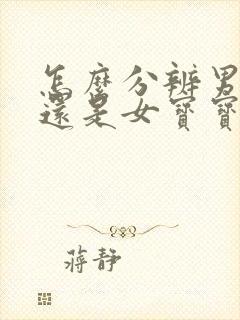 怎麼分辨男
還是女寶寶
蔣靜